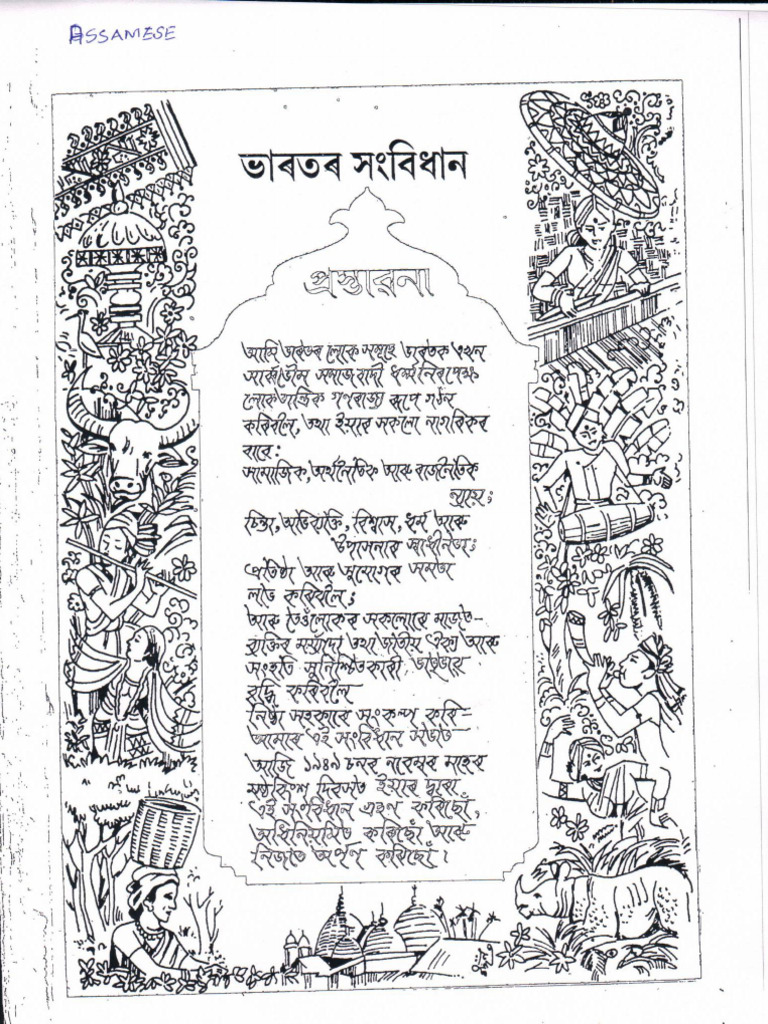 ASSAMESE
ভাৰতৰ সংবিধান
প্ৰস্তাৱনা
আমি ভাৰতৰ লোক সমূহে ভাৰতক এখন
সাৰ্ব্বভৌম সমাজবাদী ধৰ্ম্মনিৰপেক্ষ
লোকতান্ত্ৰিক গণৰাজ্য ৰূপে গঠন
কৰিবলৈ, তথা ইয়াৰ সকলো নাগৰিকৰ
বাবে:
সামাজিক, অৰ্থনৈতিক আৰু ৰাজনৈতিক
ন্যায়;
চিন্তা, অভিব্যক্তি, বিশ্বাস, ধৰ্ম আৰু
উপাসনাৰ স্বাধীনতা;
প্ৰতিষ্ঠা আৰু সুযোগৰ সমতা
লাভ কৰিবলৈ;
আৰু তেওঁলোকৰ সকলোৰে মাজত–
ব্যক্তিৰ মৰ্য্যাদা তথা জাতীয় ঐক্য আৰু
সংহতি সুনিশ্চিতকাৰী ভাতৃভাব
বৃদ্ধি কৰিবলৈ
নিষ্ঠা সহকাৰে সংকল্প কৰি–
আমাৰ এই সংবিধান সভাত
আজি ১৯৪৯ চনৰ নৱেম্বৰ মাহৰ
ষষ্ঠবিংশ দিৱসত ইয়াৰ দ্বাৰা
এই সংবিধান গ্ৰহণ কৰিছোঁ,
অধিনিয়মিত কৰিছোঁ আৰু
নিজকে অৰ্পণ কৰিছোঁ।